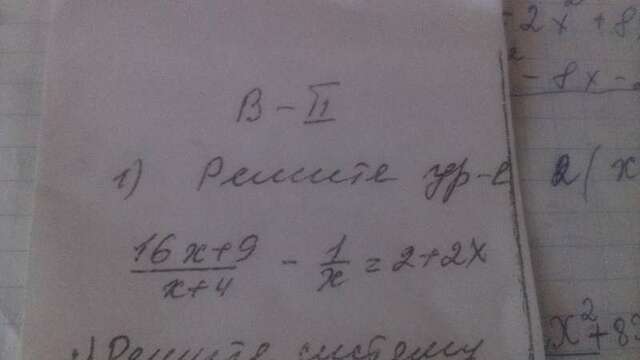 В-II
1) Решите ур-е
\frac{16x+9}{x+4} - \frac{1}{x} = 2+2x
) Решите систему
-2x²+8
²-8x-
2(x
x²+8